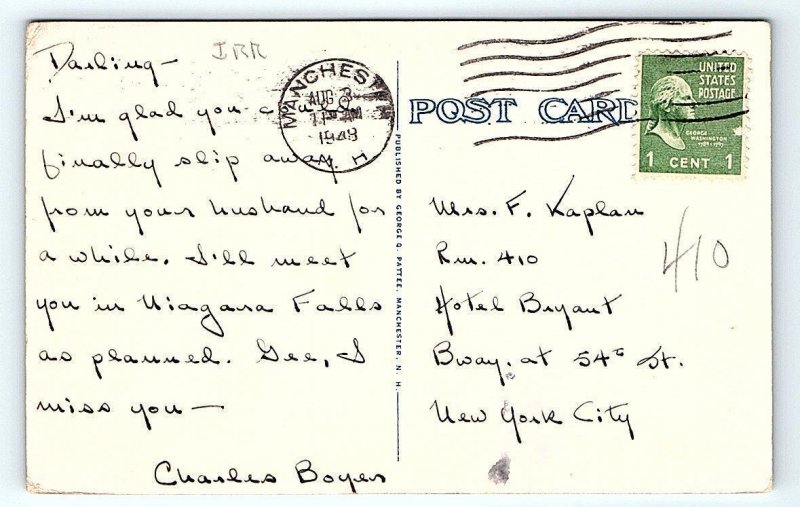 IRR
Darling—
I'm glad you could
finally slip away
from your husband for
a while. I'll meet
you in Niagara Falls
as planned. Gee, I
miss you—
Charles Boyer
MANCHESTER
AUG 3
11 AM
1948
N. H.
PUBLISHED BY GEORGE Q. PATTEE, MANCHESTER, N. H.
POST CARD
UNITED
STATES
POSTAGE
GEORGE
WASHINGTON
1789-1797
1 CENT 1
Mrs. F. Kaplan
Rm. 410
Hotel Bryant
Bway. at 54th St.
New York City
410